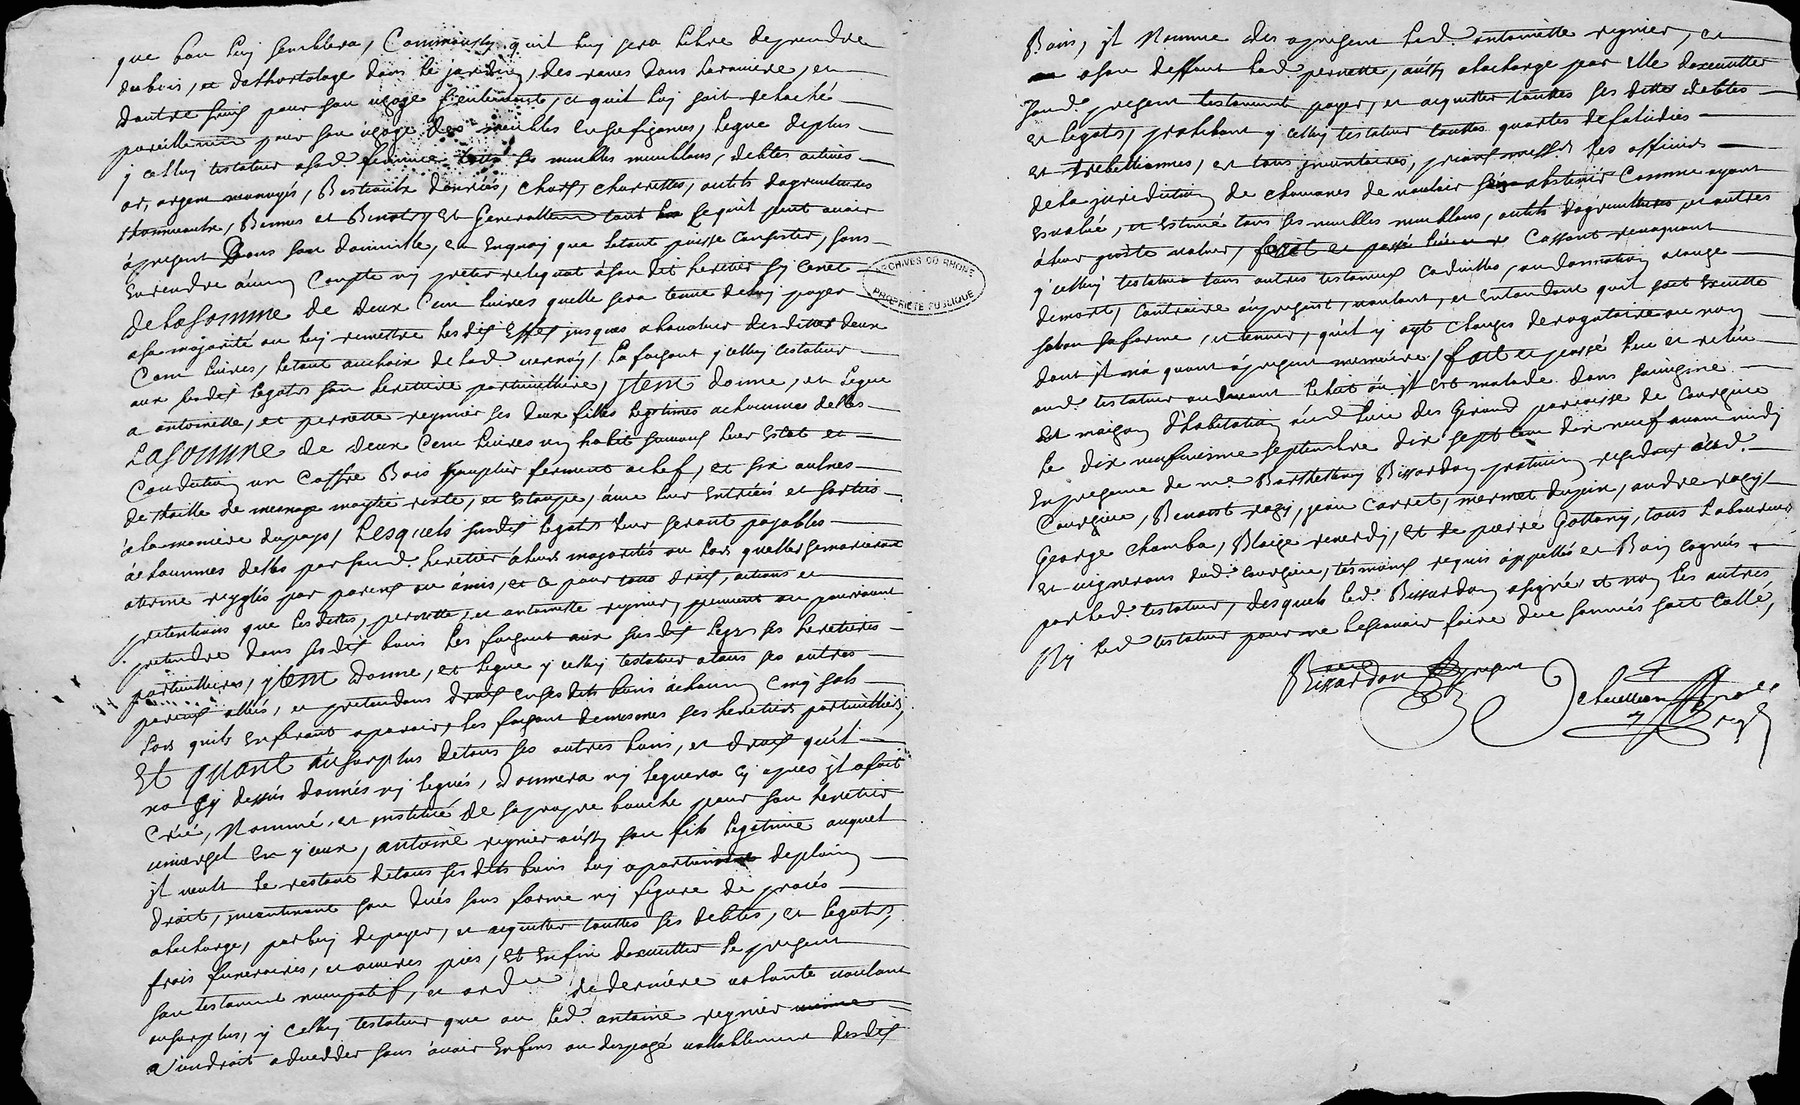 que bon luy semblera, Comm'aussy quil luy sera libre de prendre
du bois, et de lhortolage dans le jardin, des raves dans la raviere, et
dautre fruis pour son usage seulement, et quil luy soit relaché
pareillement pour son usage des meubles, legue de plus
y celluy testateur a sad. femme tous ses meubles meublans, debtes actives
or, argent monnoyés, Bestiaux danréés, chars, charrettes, outils dagriculture
thonneaux, Bennes et Benots, et Generallement tout ce quil peut avoir
a present Dans son domicille, et en quoy que le tout puisse consister, sans
en rendre aucun Compte ny preter reliquat a son dit heretier sy ce nest
De la somme de deux Cent livres quelle sera tenue de luy payer
a sa majorité ou luy remettre lesdis effes jusques a la valeur desdittes deux
Cent livres, le tout au choix de lad. vernay, la faisant y celluy testateur
aux susdis legats son heretiere particulliere, Item donne, et legue
a antoinette, et pernette regnier ses deux filles legitimes a chacune delles
La somme de deux Cent livres un habit suivant leur Estat et
Condition un Coffre Bois sauplin fermant a clef, et six aulnes
de thoille de menage moytie riste, et estoupe, avec leur entréés et sortis
a la maniere du pays, Lesquels susdis legats leur seront payables
a chacunes delles par sond. heretier a leurs majorités ou lors quelles se marieront
a terme regglés par parens ou amis, et ce pour tous drois, actions et
pretentions que lesdittes, pernette, et antoinette regnier, peuvent ou pouroient
pretendre dans sesdis biens les faisant aux susdis legts ses heretieres
particullieres, Item Donne, et legue y celluy testateur a tous ses autres
parens alliés, et pretendans drois en sesdits biens a chacun Cinq sols
lors quils en feront aparoir, les faisant de mesmes ses heretiers particulliers,
Et quant au surplus de tous ses autres biens, et drois quil
na cy dessus donnés ny legués, donnera ny leguera cy apres il a fait
Créé, Nommé, et institué de sa propre bouche pour son heretier
universel en yceux, antoine regnier aussy son fils legitime auquel
il veult le restant de tous sesdits biens luy apartenir de plain
droit, incontinant son decés sans forme ny figure de procés
a la charge, par luy de payer, et acquitter touttes ses debtes, et legats,
frais funeraires, et œuvres pies, et enfin dexecutter le present
son testament nuncupatif, et ordre de derniere volonte voulant
au surplus, y celluy testateur que ou led. antoine regnier
viendroit a decedder sans avoir enfens ou disposé vallablement desdis
Biens, il Nomme des apresent lad. antoinette regnier, et
a son deffaut lad. pernette, aussy a la charge par elle dexecutter
sond. present testament payer, et acquitter touttes ses dittes debtes
et legats, prohibant y celluy testateur touttes quartes de falcidies
et trebellianes, et tous inventaires, priant mess.rs les officiers
de la juridiction de chamanes de vouloir sen abstenir Comme ayant
Evalué, et Estimé tous ses meubles meublans, outils dagriculture, et autres
a leur juste valeur, Cassant revoquant
y celluy testateur tous autres testamens codicilles, ou donnation a cause
de mort, Contraire au present, voulant, et Entendant quil soit executte
selon sa forme, et teneur, quil y ayt clauses derogatoire ou non
dont il na quant a present memoire, fait et passé leu et releu
aud. testateur au devant le lict ou il est malade dans
sa maison d'habitation aud. lieu des Giraud parroisse de Courzieu
le dix neufvieme septembre dix sept cent dix neuf avant midy
En presence de me Barthellemy Bissardon praticien residant aud.
Courzieu, Benoist, jean Carret, mermet dupin, andre
George chamba, Blaize venerdy, et de pierre Gottary, tous Laboureurs
et vignerons dud. courzieu, tesmoins requis appellés et Bien cognus
par led. testateur, desquels led. Bissardon a signér et non les autres
Ny led. testateur pour ne le sçavoir faire due sommés soit Collé,
Bissardon present
ARCHIVES DU RHONE
PROPRIÉTÉ PUBLIQUE